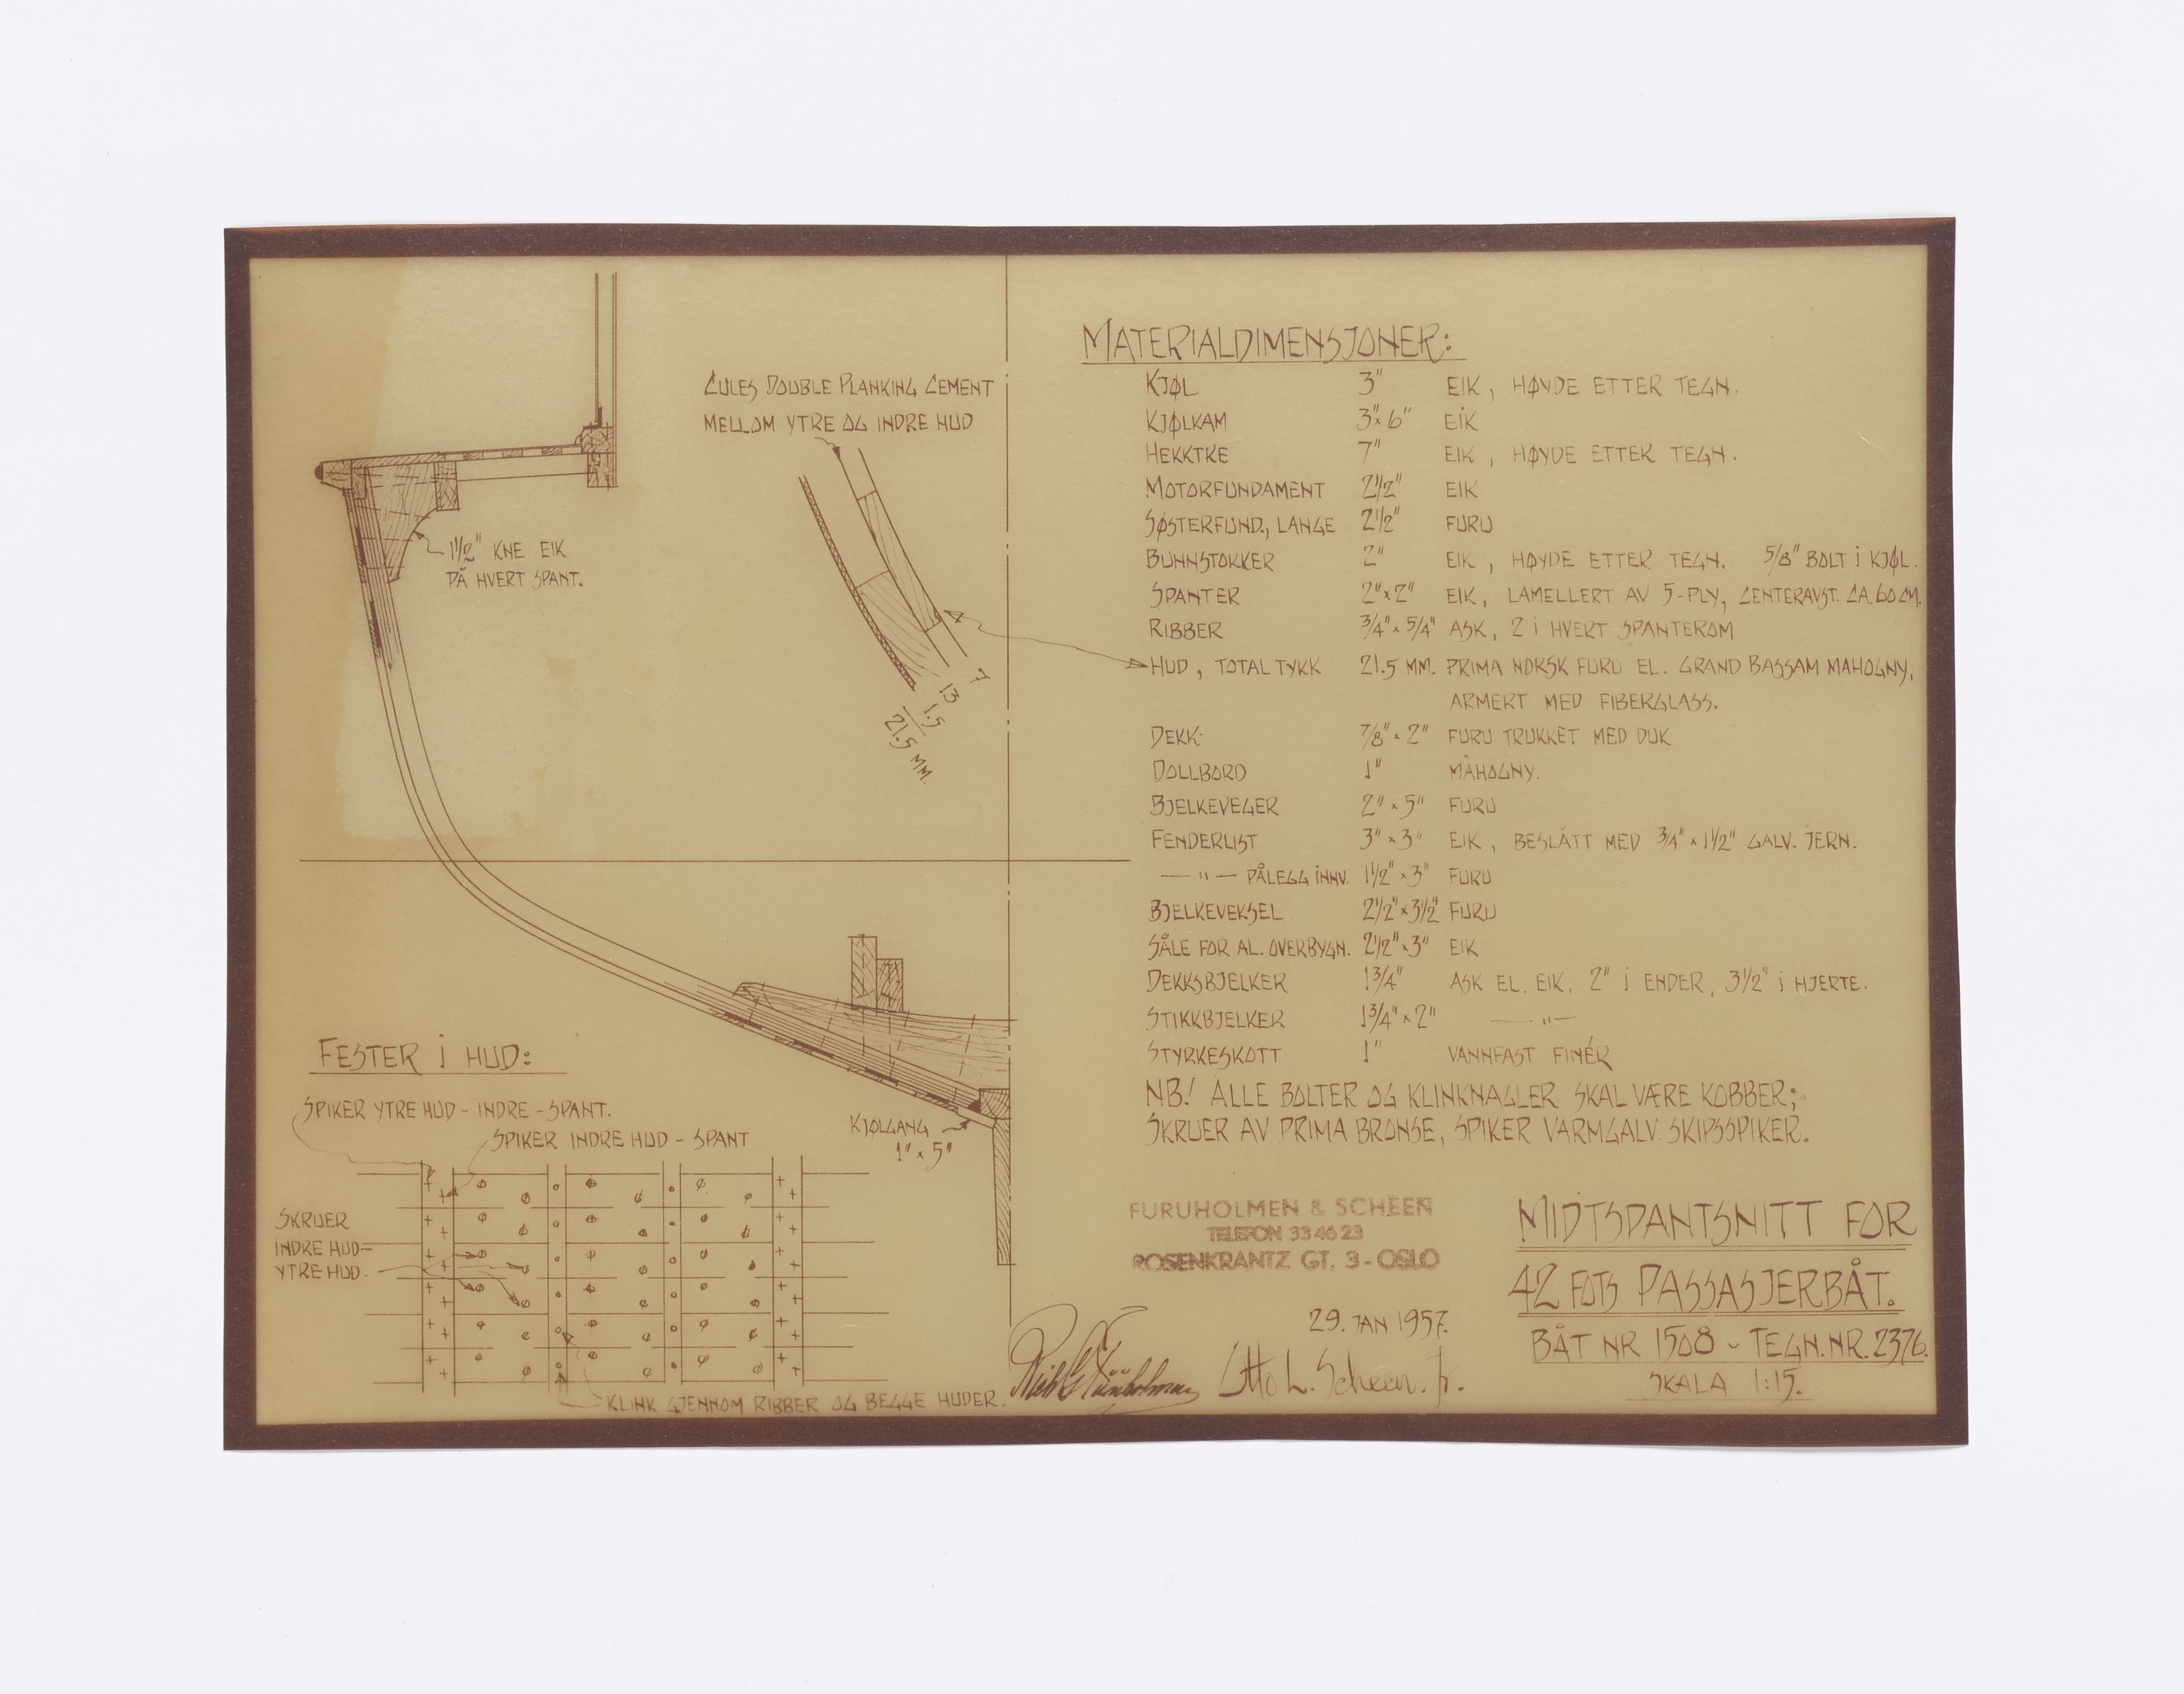 CULES DOUBLE PLANKING CEMENT
MELLOM YTRE OG INDRE HUD
1½" KNE EIK
PÅ HVERT SPANT.
7
13
1.5
21.5 MM.
MATERIALDIMENSJONER:
KJØL 3" EIK, HØYDE ETTER TEGN.
KJØLKAM 3"×6" EIK
HEKKTRE 7" EIK, HØYDE ETTER TEGN.
MOTORFUNDAMENT 2½" EIK
SØSTERFUND., LANGE 2½" FURU
BUNNSTOKKER 2" EIK, HØYDE ETTER TEGN. 5/8" BOLT I KJØL.
SPANTER 2"×2" EIK, LAMELLERT AV 5-PLY, CENTERAVST. CA. 60 CM.
RIBBER ¾"×5/4" ASK, 2 I HVERT SPANTEROM
HUD, TOTAL TYKK 21.5 MM. PRIMA NORSK FURU EL. GRAND BASSAM MAHOGNY,
ARMERT MED FIBERGLASS.
DEKK 7/8"×2" FURU TRUKKET MED DUK
DOLLBORD 1" MAHOGNY.
BJELKEVEGER 2"×5" FURU
FENDERLIST 3"×3" EIK, BESLÅTT MED ¾"×1½" GALV. JERN.
— " — PÅLEGG INNV. 1½"×3" FURU
BJELKEVEKSEL 2½"×3½" FURU
SÅLE FOR AL. OVERBYGN. 2½"×3" EIK
DEKKSBJELKER 1¾" ASK EL. EIK, 2" I ENDER, 3½" I HJERTE.
STIKKBJELKER 1¾"×2" — " —
STYRKESKOTT 1" VANNFAST FINÉR
NB! ALLE BOLTER OG KLINKNAGLER SKAL VÆRE KOBBER;
SKRUER AV PRIMA BRONSE, SPIKER VARMGALV. SKIPSSPIKER.
KJØLGANG
1"×5"
FESTER I HUD:
SPIKER YTRE HUD - INDRE - SPANT.
SPIKER INDRE HUD - SPANT
SKRUER
INDRE HUD-
YTRE HUD.
KLINK GJENNOM RIBBER OG BEGGE HUDER.
FURUHOLMEN & SCHEEN
TELEFON 33 46 23
ROSENKRANTZ GT. 3 - OSLO
29. JAN 1957.
Otto L. Scheen. jr.
MIDTSPANTSNITT FOR
42 FOTS PASSASJERBÅT.
BÅT NR 1508 - TEGN. NR. 2376.
SKALA 1:15.